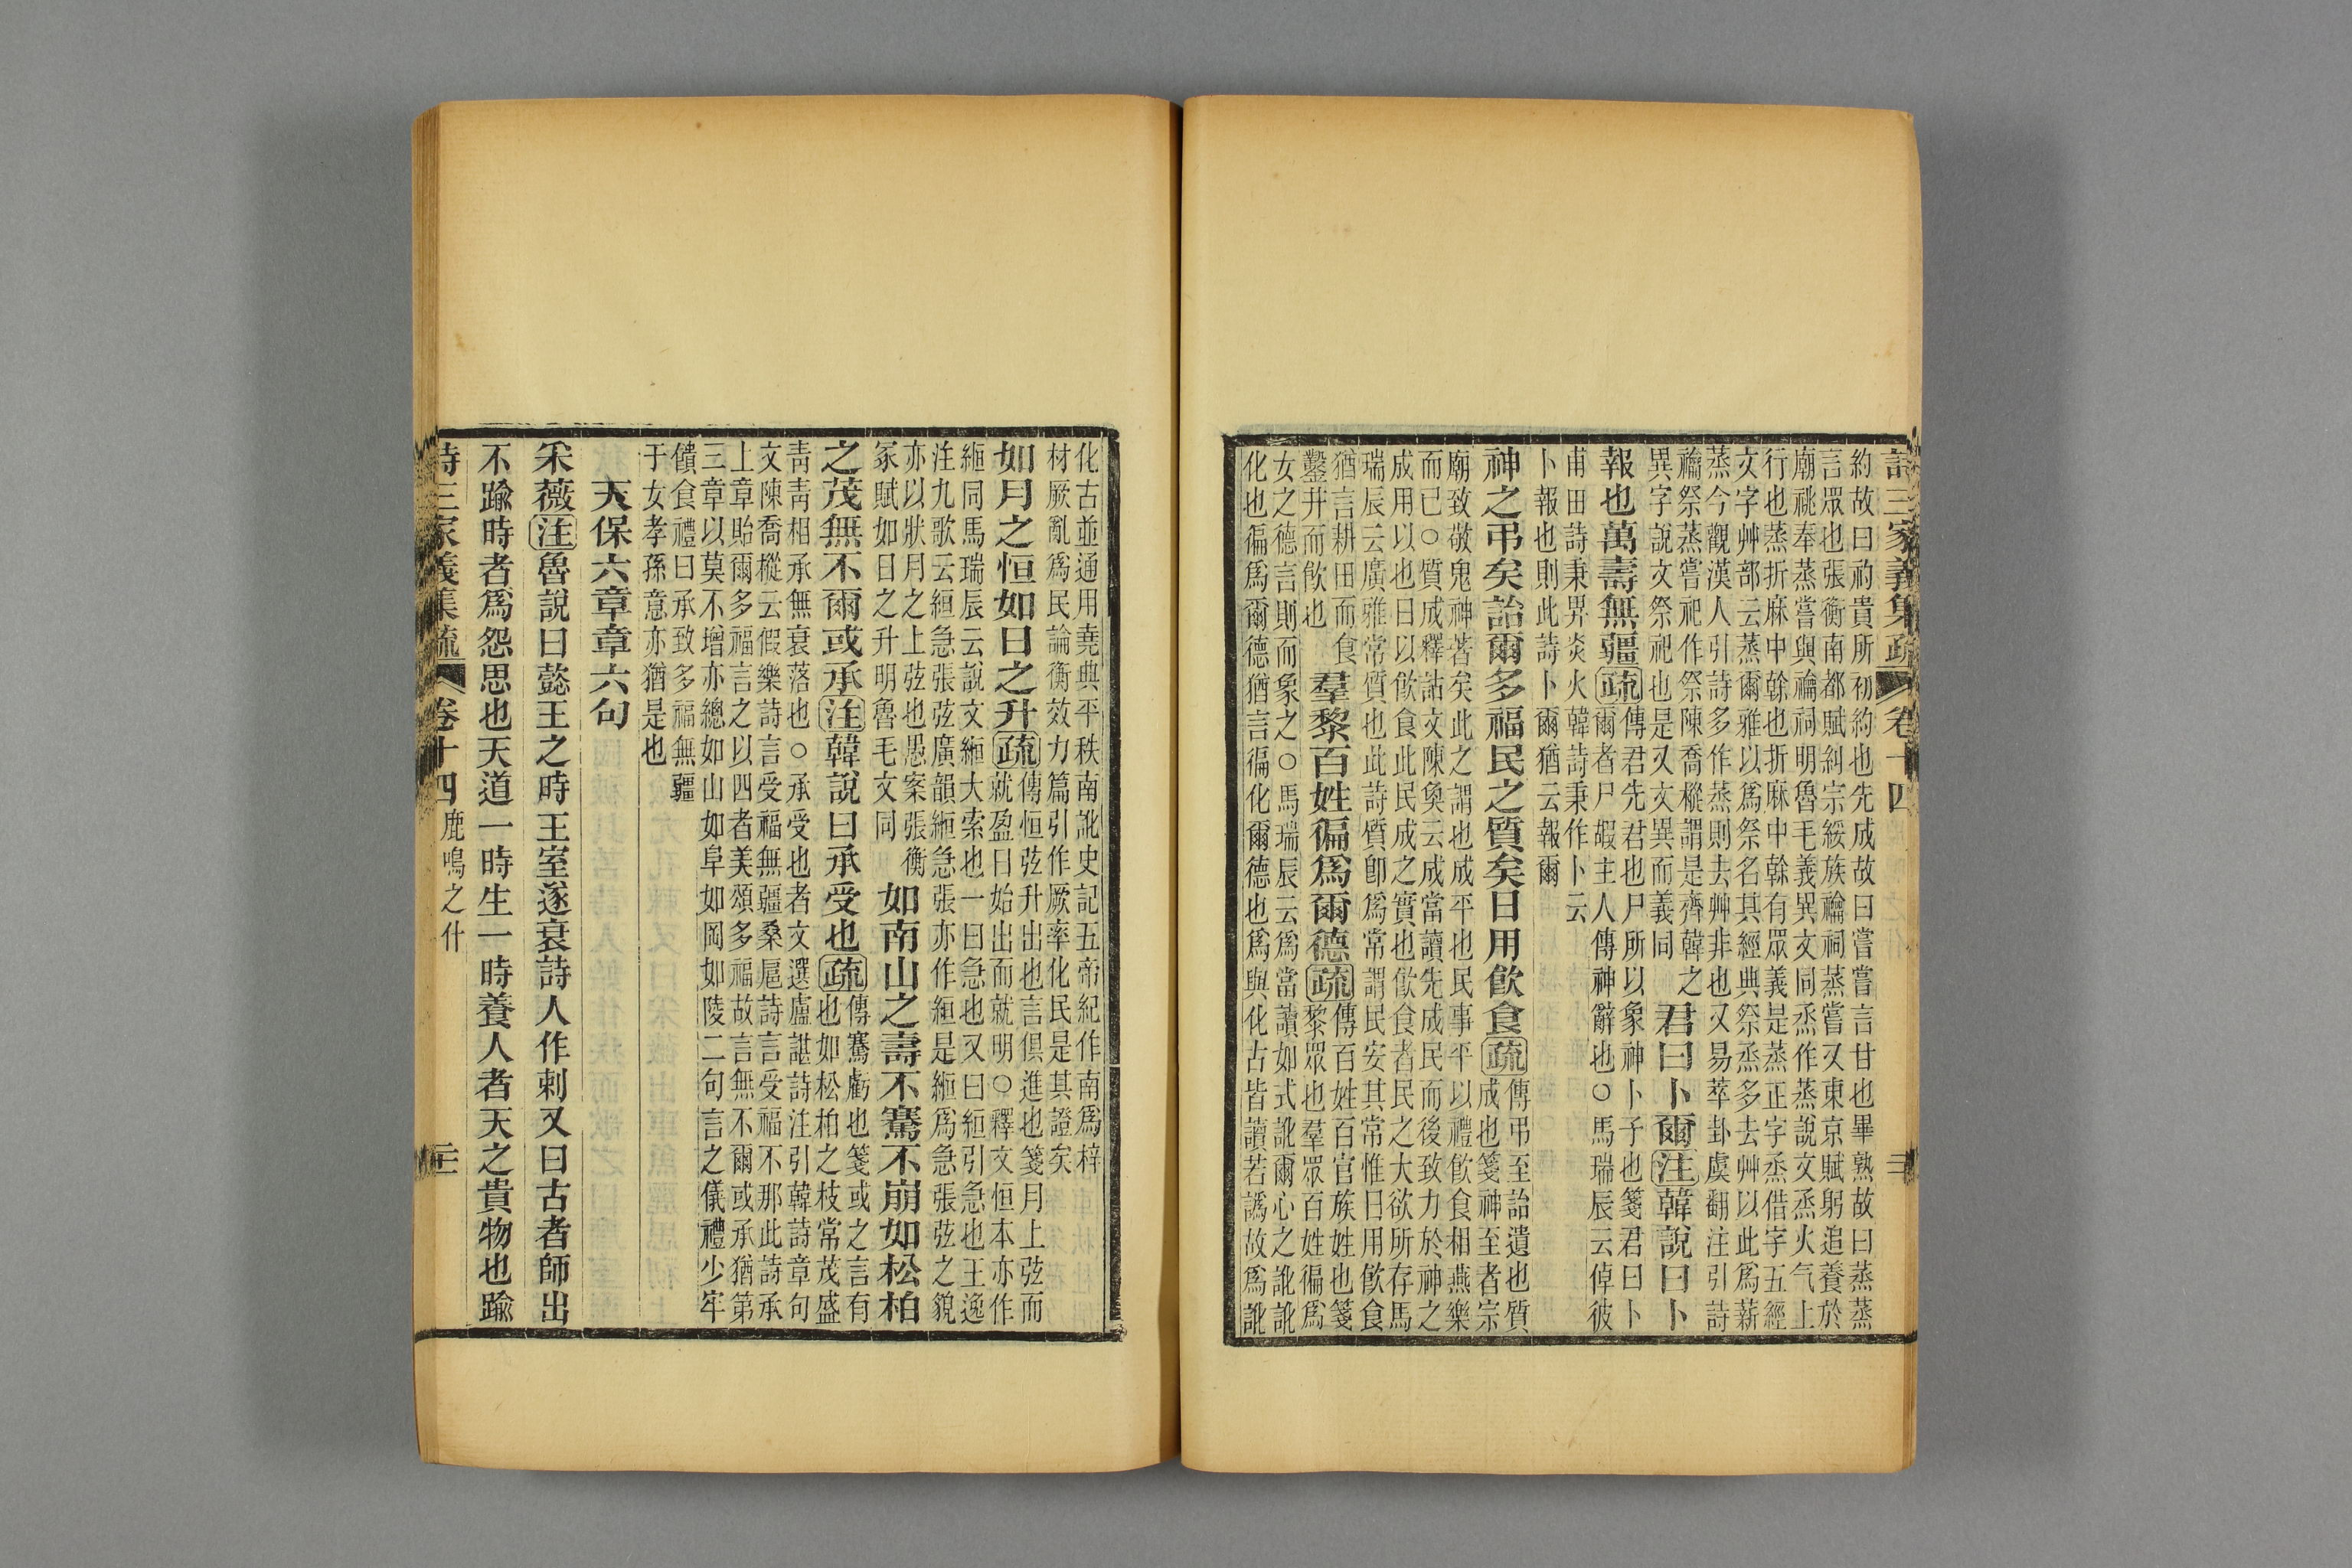 詩三家義集疏 卷十四
約故曰礿貴所初礿也先成故曰嘗嘗言甘也畢熟故曰蒸蒸
言眾也張衡南都賦糾宗綏族禴祠蒸嘗又東京賦躬追養於
廟祧奉蒸嘗與禴祠明魯毛義異文同烝作蒸說文烝火气上
行也蒸折麻中榦也折麻中榦有眾義是蒸正字烝借字五經
文字艸部云蒸爾雅以爲祭名其經典祭烝多去艸以此爲薪
蒸今觀漢人引詩多作蒸則去艸非也又易萃卦虞翻注引詩
禴祭蒸嘗祀作祭陳喬樅謂是齊韓之
異字說文祭祀也是又文異而義同
君曰卜爾注韓說曰卜
報也萬壽無疆疏
傳君先君也尸所以象神卜予也箋君曰卜
爾者尸嘏主人傳神辭也○馬瑞辰云倬彼
甫田詩秉畀炎火韓詩秉作卜云
卜報也則此詩卜爾猶云報爾
神之弔矣詒爾多福民之質矣日用飲食疏
傳弔至詒遺也質
成也箋神至者宗
廟致敬鬼神著矣此之謂也成平也民事平以禮飲食相燕樂
而已○質成釋詁文陳奐云成當讀先成民而後致力於神之
成用以也日以飲食此民成之實也飲食者民之大欲所存馬
瑞辰云廣雅常質也此詩質卽爲常謂民安其常惟日用飲食
猶言耕田而食
鑿井而飲也
羣黎百姓徧爲爾德疏
傳百姓百官族姓也箋
黎眾也羣眾百姓徧爲
女之德言則而象之○馬瑞辰云爲當讀如式訛爾心之訛訛
化也徧爲爾德猶言徧化爾德也爲與化古皆讀若譌故爲訛
化古並通用堯典平秩南訛史記五帝紀作南爲梓
材厥亂爲民論衡效力篇引作厥率化民是其證矣
如月之恒如日之升疏
傳恒弦升出也言俱進也箋月上弦而
就盈日始出而就明○釋文恒本亦作
緪同馬瑞辰云說文緪大索也一曰急也又曰絚引急也王逸
注九歌云絚急張弦廣韻緪急張亦作絚是緪爲急張弦之貌
亦以狀月之上弦也愚案張衡
冢賦如日之升明魯毛文同
如南山之壽不騫不崩如松柏
之茂無不爾或承注韓說曰承受也疏
傳騫虧也箋或之言有
也如松柏之枝常茂盛
青青相承無衰落也○承受也者文選盧諶詩注引韓詩章句
文陳喬樅云假樂詩言受福無疆桑扈詩言受福不那此詩承
上章貽爾多福言之以四者美頌多福故言無不爾或承猶第
三章以莫不增亦總如山如阜如岡如陵二句言之儀禮少牢
饋食禮曰承致多福無疆
于女孝孫意亦猶是也
天保六章章六句
采薇注魯說曰懿王之時王室遂衰詩人作刺又曰古者師出
不踰時者爲怨思也天道一時生一時養人者天之貴物也踰
詩三家義集疏 卷十四 鹿鳴之什